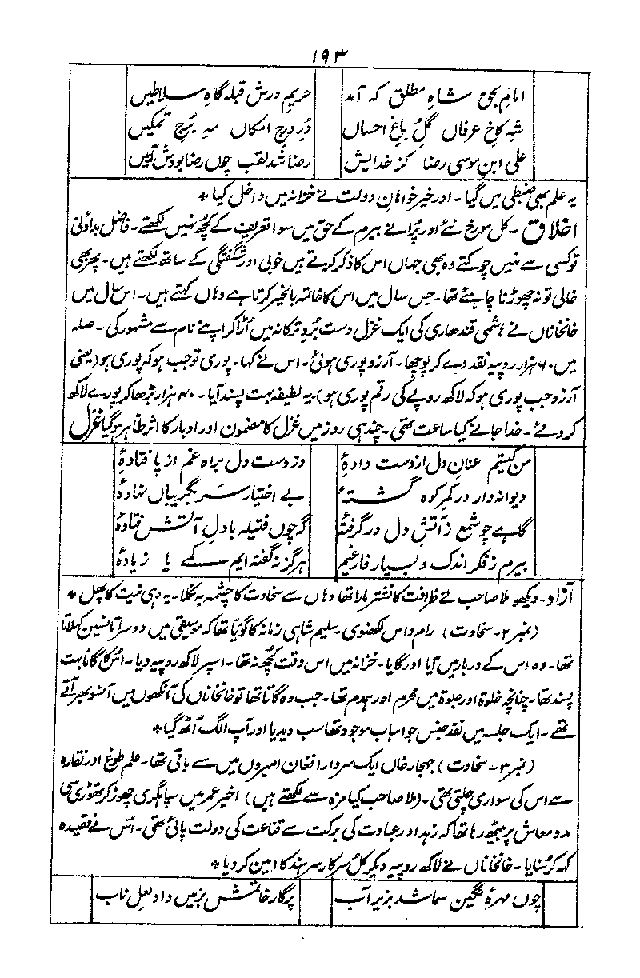 ۱۹۳
امام بحق شاہ مطلق کہ آمد حریم درش قبلہ گاہ سلاطین
شہ کاخ عرفان گل باغ احسان در درج امکان مہ برج تمکین
علی ابن موسی رضا کز خدایش رضا شد لقب چون رضا بودش آئین
یہ علم بھی ضبطی میں گیا۔ اور خیر خواہان دولت نے خزانہ میں داخل کیا *
اخلاق۔ کل مورخ نئے اور پرانے بیرم کے حق میں سوا تعریف کے کچھ نہیں لکھتے۔ فاضل بداؤنی
توکسی سے نہیں چوکتے وہ بھی جہاں اس کا ذکر کرتے ہیں خوبی اور شگفتگی کے ساتھ لکھتے ہیں۔ پھر بھی
خالی تو نہ چھوڑنا چاہئے تھا۔ جس سال میں اس کا خاتمہ بالخیر کرتا ہے وہاں کہتے ہیں۔ اس سال میں
خانخاناں نے ہاشمی قندھاری کی ایک غزل دست برد ترکانہ میں اڑا کر اپنے نام سے مشہور کی۔ صلہ
میں ۶۰ ہزار روپیہ نقد دے کر پوچھا۔ آرزو پوری ہوئی۔ اس نے کہا۔ پوری توجب ہو کہ پوری ہو (یعنی
آرزو جب پوری ہو کہ لاکھ روپے کی رقم پوری ہو) یہ لطیفہ بہت پسند آیا۔ ۴۰ ہزار بڑھا کر پورے لاکھ
کر دیئے۔ خدا جانے کیا ساعت تھی۔ چند ہی روز میں غزل کا مضمون اور ادبار کا اثر ظاہر ہو گیا غزل
من کیستم عنان دل از دست دادۂ وز دست دل براہ غم از پا فتادۂ
دیوانہ وار در کمر کوہ گشتۂ بے اختیار سر بگریباں نہادۂ
گاہے چو شمع ز آتش دل در گرفتۂ گہ چوں فتیلہ با دل آتش فتادۂ
بیرم ز فکر اندک و بسیار فارغیم ہرگز نہ گفتہ ایم کمے یا زیادۂ
آزاد۔ دیکھو ملا صاحب نے ظرافت کا نشتر مارا تھا وہاں سے سخاوت کا چشمہ بہ نکلا۔ یہ وہی نیت کا پھل *
(نمبر ۲۔ سخاوت) رام داس لکھنوی سلیم شاہی زمانہ کا گویا تھا کہ موسیقی میں دوسرا تانسین کہلاتا
تھا۔ وہ اس کے دربار میں آیا اور گایا۔ خزانہ میں اس وقت کچھ نہ تھا۔ اسپر لاکھ روپیہ دیا۔ اس کا گانا بہت
پسند تھا۔ چنانچہ خلوۃ اور جلوۃ میں محرم اور ہمدم تھا۔ جب وہ گاتا تھا تو خانخاناں کی آنکھوں میں آنسو بھر آتے
تھے۔ ایک جلسہ میں نقد جنس جو اسباب موجود تھا سب دیدیا اور آپ الگ اٹھ گیا *
(نمبر ۳۔ سخاوت) جھجار خاں ایک سردار افغان امیروں میں سے باقی تھا۔ علم طوغ اور نقارہ
سے اس کی سواری چلتی تھی۔ (ملا صاحب کیا مزہ سے لکھتے ہیں) اخیر عمر میں سپاہگری چھوڑ کر تھوڑی سی
مدد معاش پر بیٹھ رہا تھا کہ زہد اور عبادت کی برکت سے قناعت کی دولت پائی تھی۔ اس نے قصیدہ
کہہ کر سنایا۔ خانخاناں نے لاکھ روپیہ دیکر کل سرکار سرہند کا امین کر دیا *
چون مہرۂ نگین سما شد بزیر آب پرکار خاتمش بزمیں داد لعل ناب